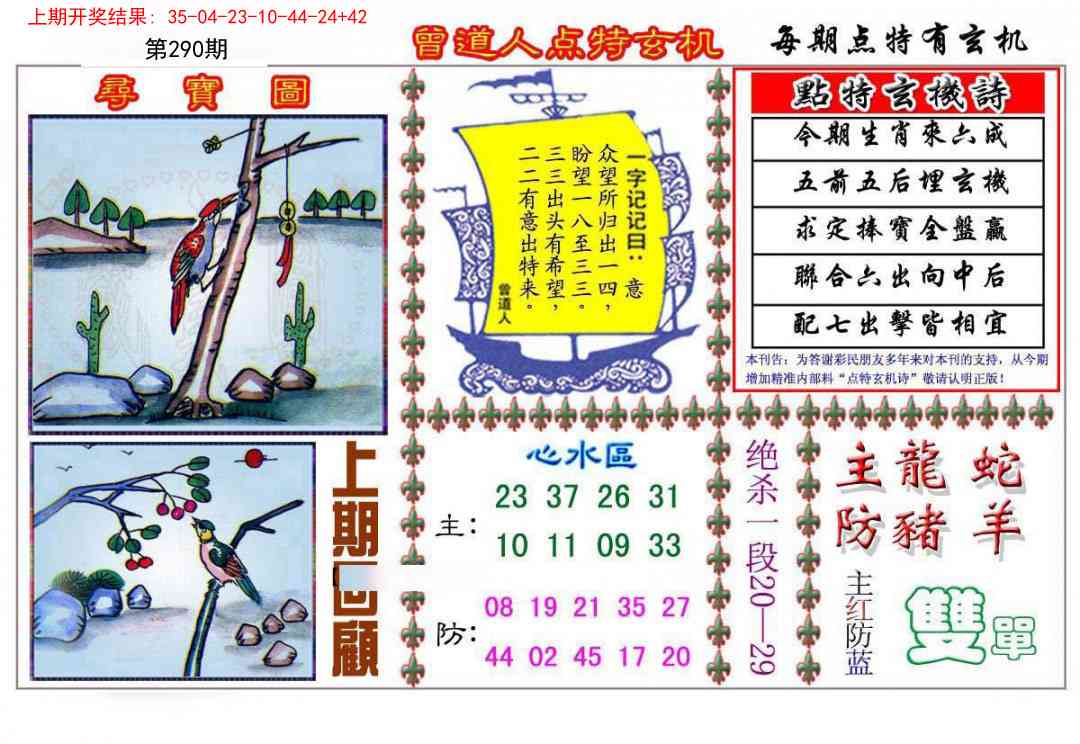 上期开奖结果：35-04-23-10-44-24+42
第290期
曾道人点特玄机
每期点特有玄机
尋寶圖
一字记记曰：意
众望所归出一四，
盼望一八至三三。
三三出头有希望，
二二有意出特来。
曾道人
點特玄機詩
今期生肖來六成
五前五后埋玄機
求定捧寶全盤贏
聯合六出向中后
配七出擊皆相宜
本刊告：为答谢彩民朋友多年来对本刊的支持，从今期
增加精准内部料“点特玄机诗”敬请认明正版！
上期回顧
心水區
主：
23 37 26 31
10 11 09 33
防：
08 19 21 35 27
44 02 45 17 20
绝杀一段20—29
主龍蛇
防豬羊
主红防蓝
雙單